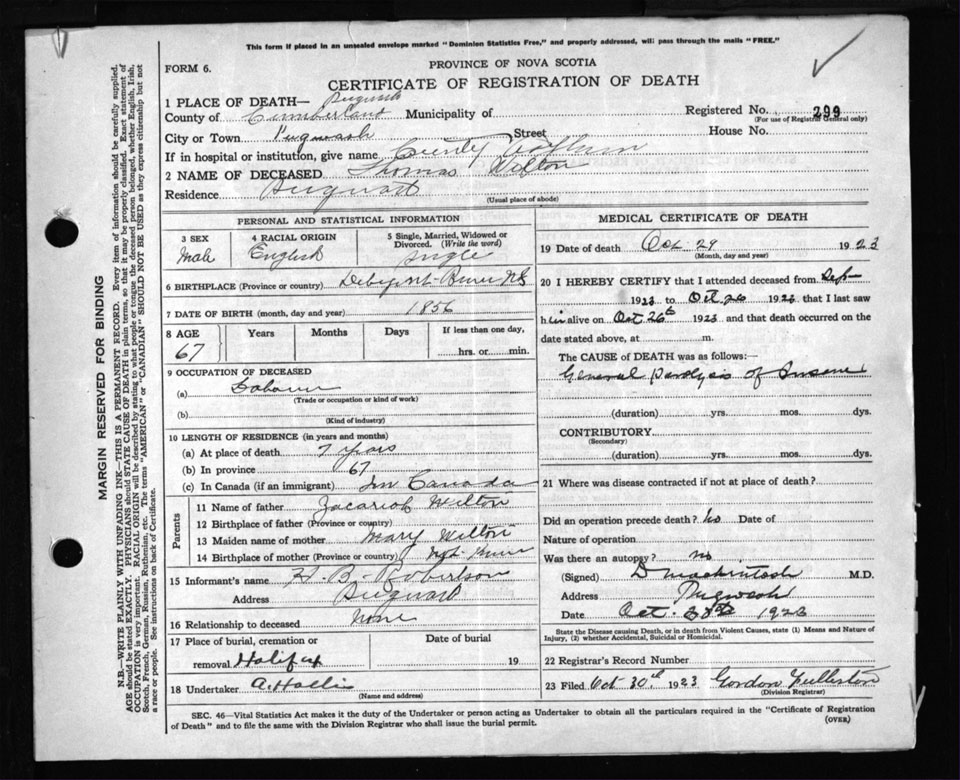 This form if placed in an unsealed envelope marked "Dominion Statistics Free," and properly addressed, will pass through the mails "FREE."
FORM 6.
PROVINCE OF NOVA SCOTIA
CERTIFICATE OF REGISTRATION OF DEATH
1 PLACE OF DEATH— Pugwash
County of Cumberland Municipality of
Registered No. 299
(For use of Registrar General only)
City or Town Pugwash Street House No.
If in hospital or institution, give name County Asylum
2 NAME OF DECEASED Thomas Wilton
Residence Pugwash
(Usual place of abode)
PERSONAL AND STATISTICAL INFORMATION
3 SEX
Male
4 RACIAL ORIGIN
English
5 Single, Married, Widowed or Divorced. (Write the word)
Single
6 BIRTHPLACE (Province or country) River NS
7 DATE OF BIRTH (month, day and year) 1856
8 AGE Years Months Days If less than one day,
67 hrs. or min.
9 OCCUPATION OF DECEASED
(a) Laborer
(Trade or occupation or kind of work)
(b)
(Kind of industry)
10 LENGTH OF RESIDENCE (in years and months)
(a) At place of death 7 years
(b) In province 67
(c) In Canada (if an immigrant) In Canada
Parents
11 Name of father Zacariah Wilton
12 Birthplace of father (Province or country)
13 Maiden name of mother Mary Wilton
14 Birthplace of mother (Province or country) Not Known
15 Informant's name H. B. Robertson
Address Pugwash
16 Relationship to deceased None
17 Place of burial, cremation or removal Halifax
Date of burial 19
18 Undertaker A. Hollis
(Name and address)
MEDICAL CERTIFICATE OF DEATH
19 Date of death Oct. 29 1923
(Month, day and year)
20 I HEREBY CERTIFY that I attended deceased from Sept
1923 to Oct 26 1923 that I last saw
him alive on Oct 26th 1923 and that death occurred on the
date stated above, at m.
The CAUSE of DEATH was as follows:
General Paralysis of Insane
(duration) yrs. mos. dys.
CONTRIBUTORY
(Secondary)
(duration) yrs. mos. dys.
21 Where was disease contracted if not at place of death?
Did an operation precede death? No Date of
Nature of operation
Was there an autopsy? no
(Signed) D Mackintosh M.D.
Address Pugwash
Date Oct. 1923
State the Disease causing Death, or in death from Violent Causes, state (1) Means and Nature of Injury, (2) whether Accidental, Suicidal or Homicidal.
22 Registrar's Record Number
23 Filed Oct 30th 1923 Gordon
(Division Registrar)
SEC. 46—Vital Statistics Act makes it the duty of the Undertaker or person acting as Undertaker to obtain all the particulars required in the "Certificate of Registration
of Death" and to file the same with the Division Registrar who shall issue the burial permit.
(OVER)
MARGIN RESERVED FOR BINDING
N.B.—WRITE PLAINLY WITH UNFADING INK—THIS IS A PERMANENT RECORD. Every item of information should be carefully supplied.
AGE should be stated EXACTLY. PHYSICIANS should STATE CAUSE OF DEATH in plain terms, so that it may be properly classified. Exact statement of
OCCUPATION is very important. RACIAL ORIGIN will be described by stating to what people or tongue the deceased person belonged, whether English, Irish,
Scotch, French, German, Russian, Ruthenian, etc. The terms "AMERICAN" or "CANADIAN" SHOULD NOT BE USED as they express citizenship but not
a race or people. See instructions on back of Certificate.